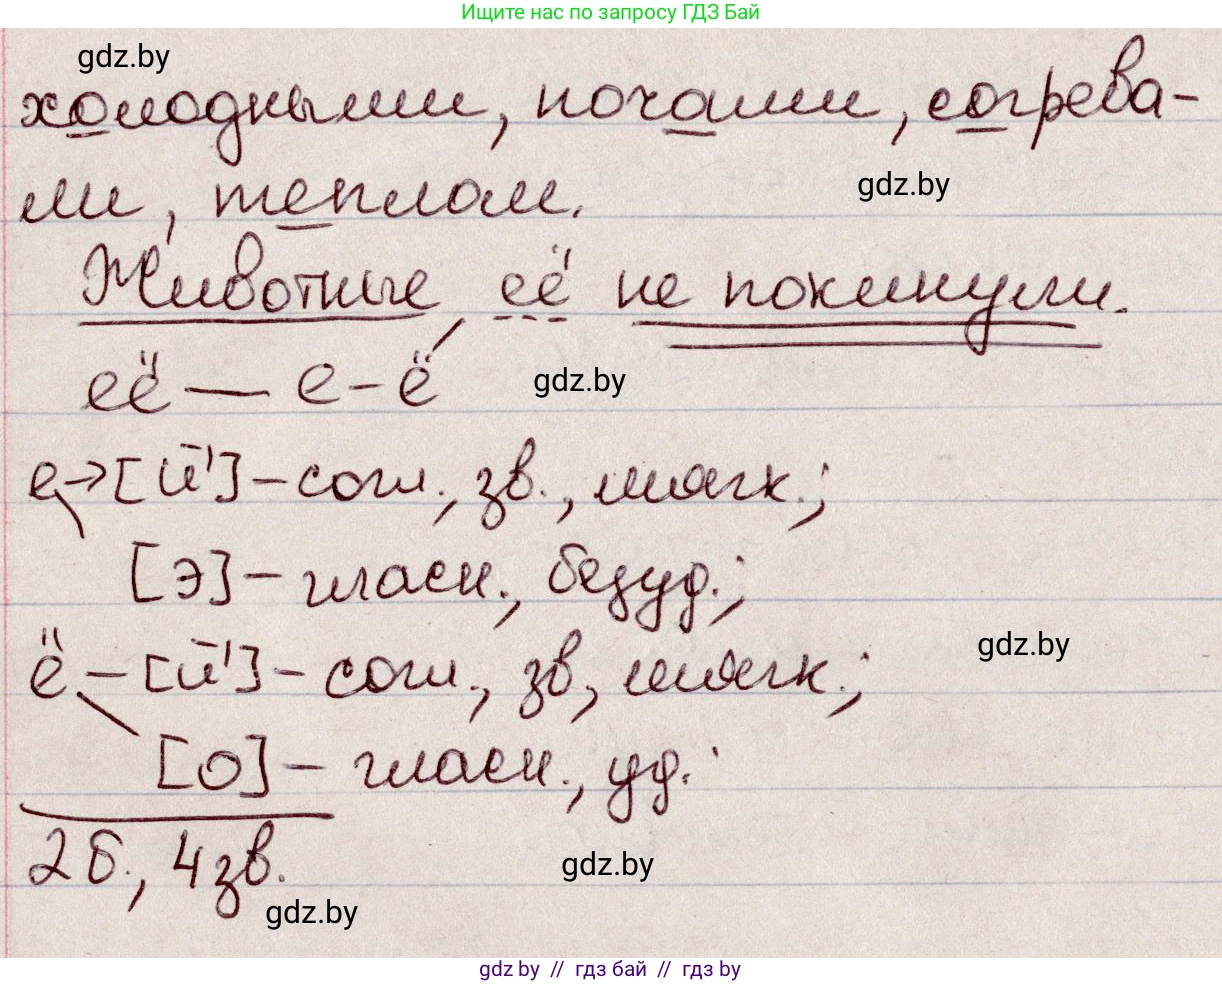 Ищите нас по запросу ГДЗ Бай
gdz.by
холодными, ночами, согрева-
ли, теплом.
gdz.by
Животные её не покинули.
её — е-ё́
gdz.by
е→[й']-согл., зв., мягк.;
[э]-гласн., безуд.;
ё-[й']-согл., зв, мягк.;
gdz.by
[о]-гласн., уд.
2б., 4зв.
gdz.by
gdz.by
gdz by // гдз бай // гдз by